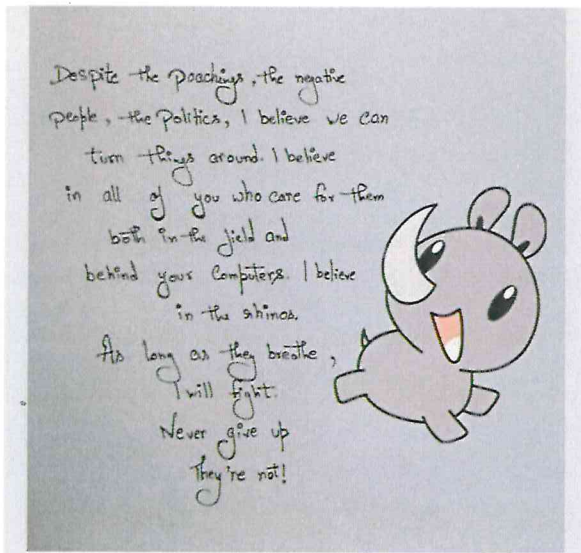 Despite the poachings, the negative
people, the Politics, I believe we can
turn things around. I believe
in all of you who care for them
both in the field and
behind your Computers. I believe
in the rhinos.
As long as they breathe,
I will fight.
Never give up
They're not!